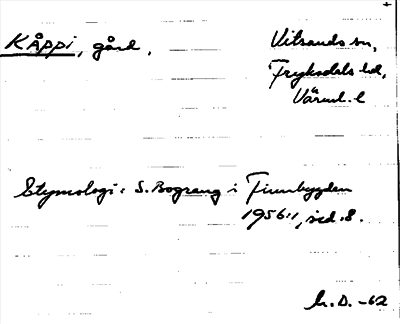 KÅPPI, gård,
Vitsands sn,
Fryksdals hd,
Värml. l
Etymologi: S. Bograng i Finnbygden
1956:1, sid. 8.
h.D. -62